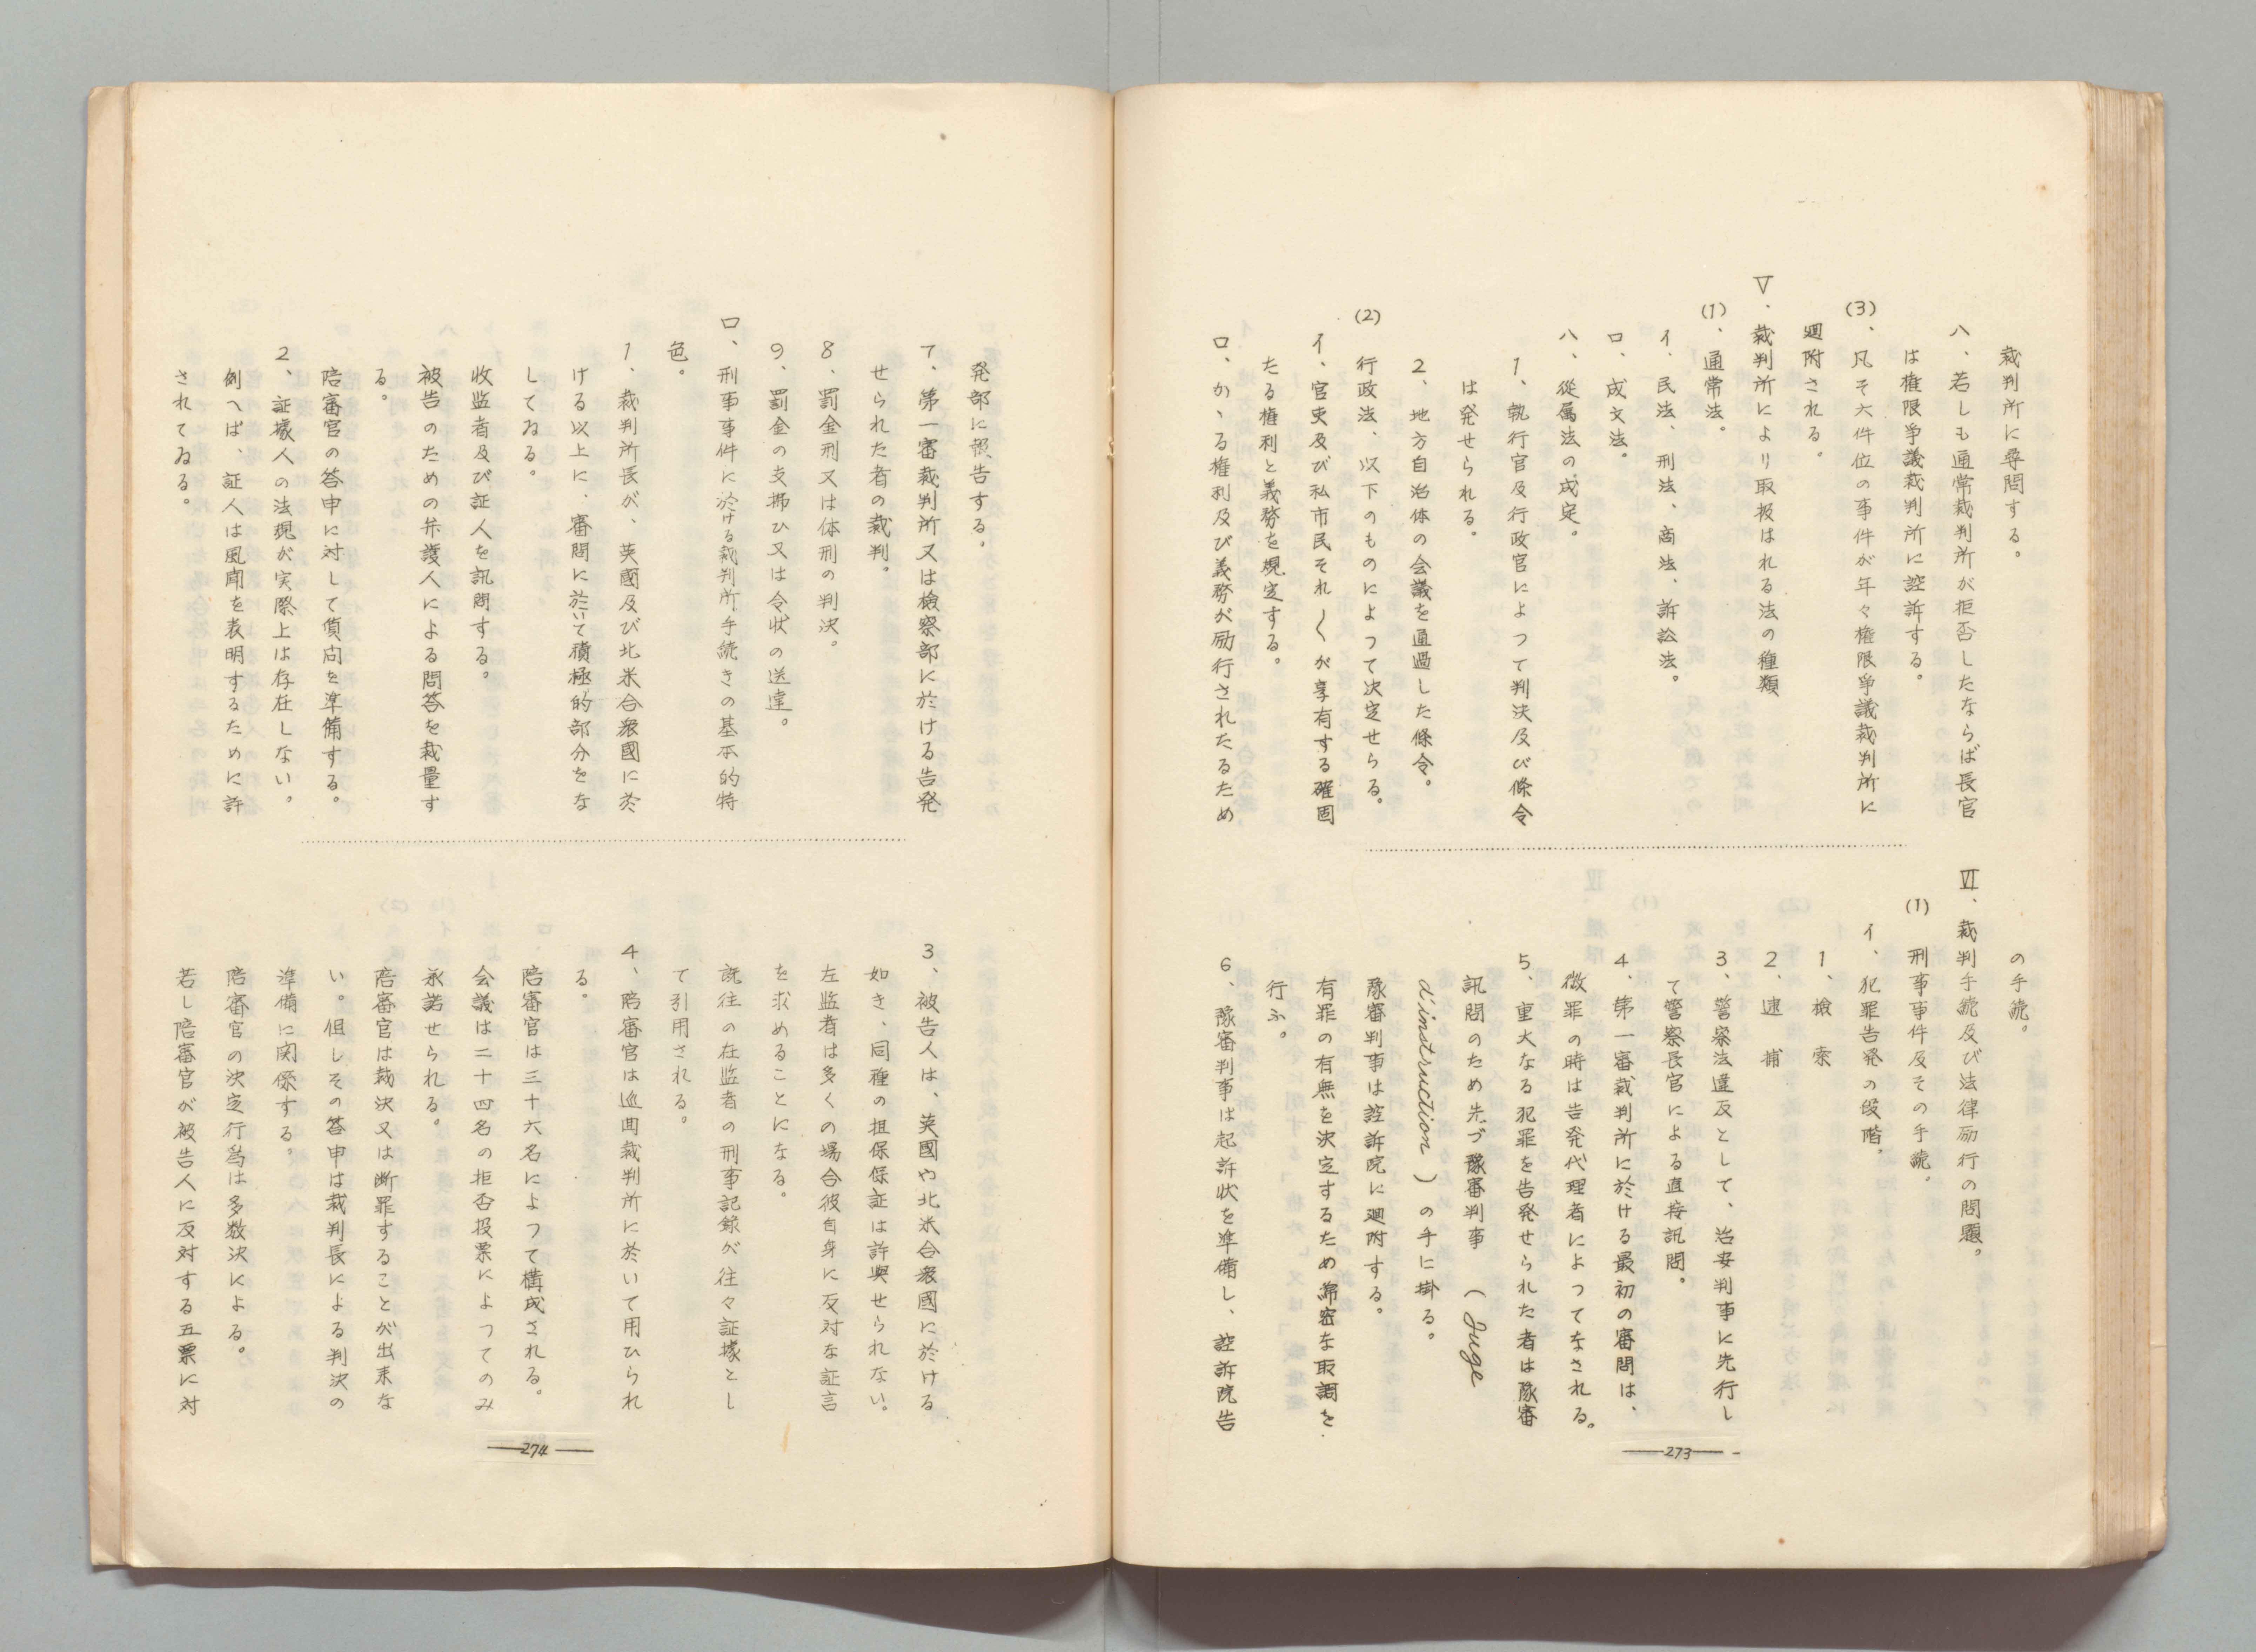 裁判所に尋問する。
ハ、若しも通常裁判所が拒否したならば長官
は権限争議裁判所に控訴する。
(3)、凡そ六件位の事件が年々権限争議裁判所に
廻附される。
Ⅴ、裁判所により取扱はれる法の種類
(1)、通常法。
イ、民法、刑法、商法、訴訟法。
ロ、成文法。
ハ、從属法の成定。
1、執行官及行政官によつて判決及び條令
は発せられる。
2、地方自治体の会議を通過した條令。
(2) 行政法、以下のものによつて決定せらる。
イ、官吏及び私市民それ〱が享有する確固
たる権利と義務を規定する。
ロ、かゝる権利及び義務が励行されたるため
の手続。
Ⅵ、裁判手続及び法律励行の問題。
(1) 刑事事件及その手続。
イ、犯罪告発の段階。
1、検 索
2、逮 捕
3、警察法違反として、治安判事に先行し
て警察長官による直接訊問。
4、第一審裁判所に於ける最初の審問は、
微罪の時は告発代理者によつてなされる。
5、重大なる犯罪を告発せられた者は豫審
訊問のため先づ豫審判事 (Juge
d'instruction)の手に掛る。
豫審判事は控訴院に廻附する。
有罪の有無を決定するため綿密な取調を
行ふ。
6、豫審判事は起訴状を準備し、控訴院告
—273—
発部に報告する。
7、第一審裁判所又は検察部に於ける告発
せられた者の裁判。
8、罰金刑又は体刑の判決。
9、罰金の支拂ひ又は令状の送達。
ロ、刑事事件に於ける裁判所手続きの基本的特
色。
1、裁判所長が、英國及び北米合衆國に於
ける以上に、審問に於いて積極的部分をな
してゐる。
收監者及び証人を訊問する。
被告のための弁護人による問答を裁量す
る。
陪審官の答申に対して質問を準備する。
2、証據人の法規が実際上は存在しない。
例へば、証人は風聞を表明するために許
されてゐる。
3、被告人は、英國や北米合衆國に於ける
如き、同種の担保保証は許與せられない。
左監者は多くの場合彼自身に反対な証言
を求めることになる。
既往の在監者の刑事記録が往々証據とし
て引用される。
4、陪審官は巡囬裁判所に於いて用ひられ
る。
陪審官は三十六名によつて構成される。
会議は二十四名の拒否投票によつてのみ
承諾せられる。
陪審官は裁決又は断罪することが出来な
い。但しその答申は裁判長による判決の
準備に関係する。
陪審官の決定行爲は多数決による。
若し陪審官が被告人に反対する五票に対
—274—